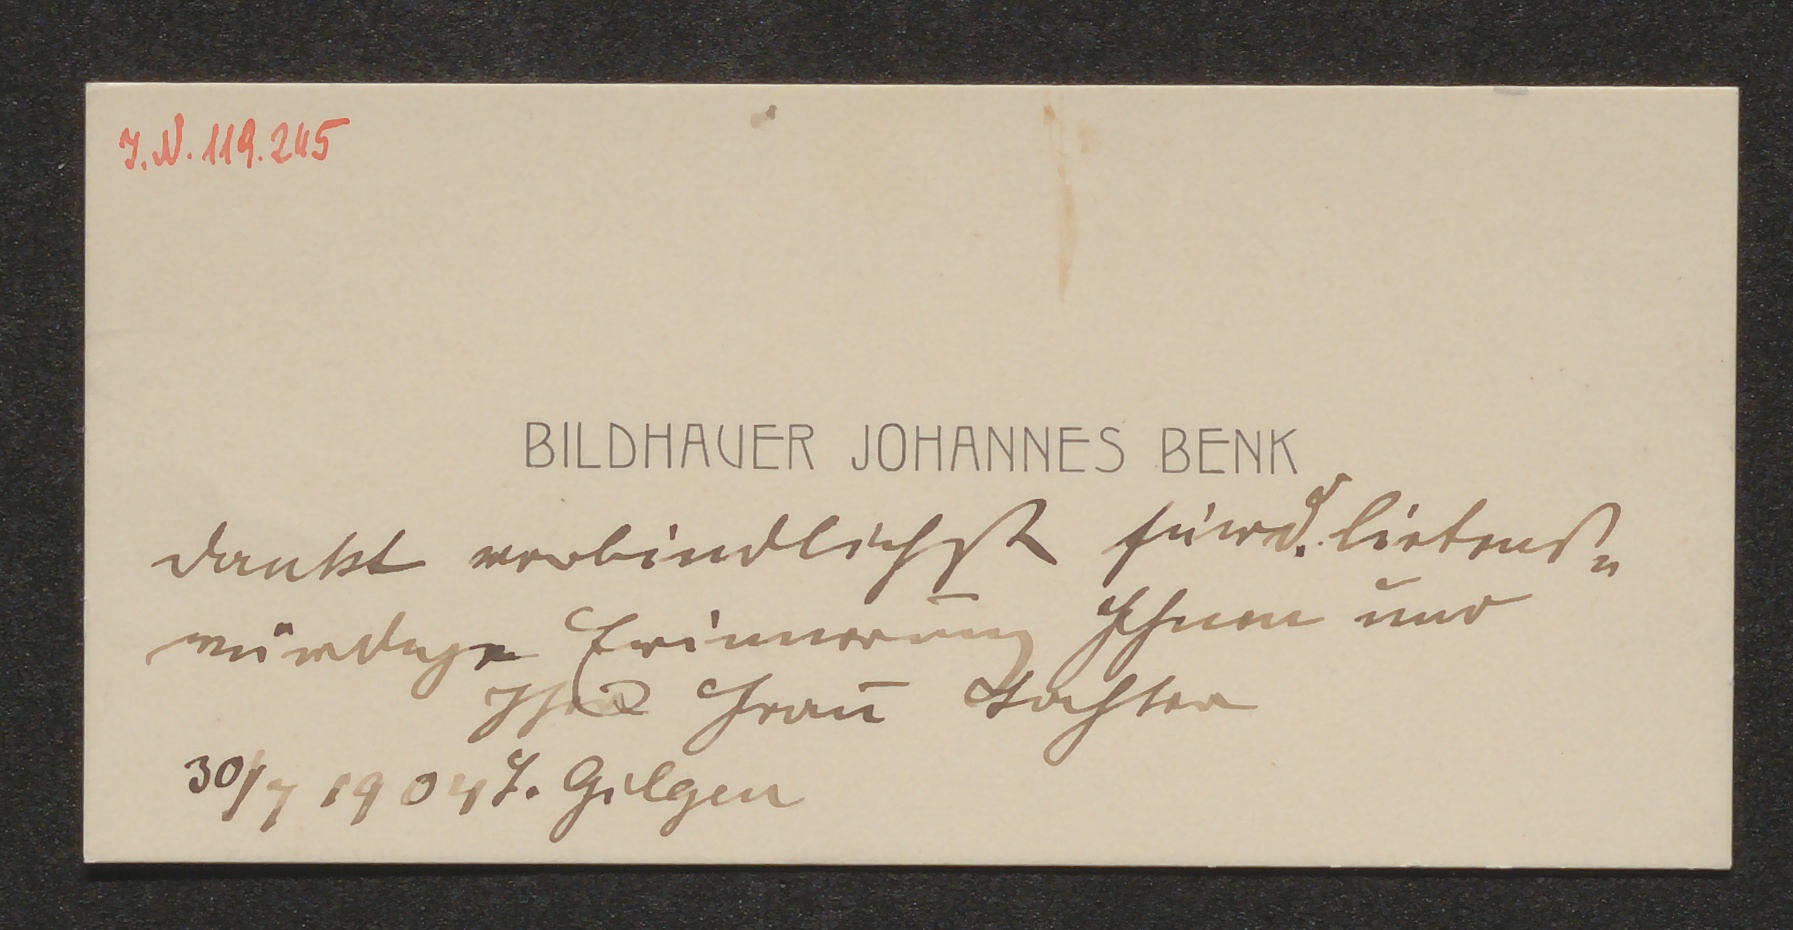 J.N. 119.245
BILDHAUER JOHANNES BENK
dankt verbindlichst für d. liebens=
würdige Erinnerung Ihnen und
Ihrer Frau Tochter
30/7 1904 S. Gilgen